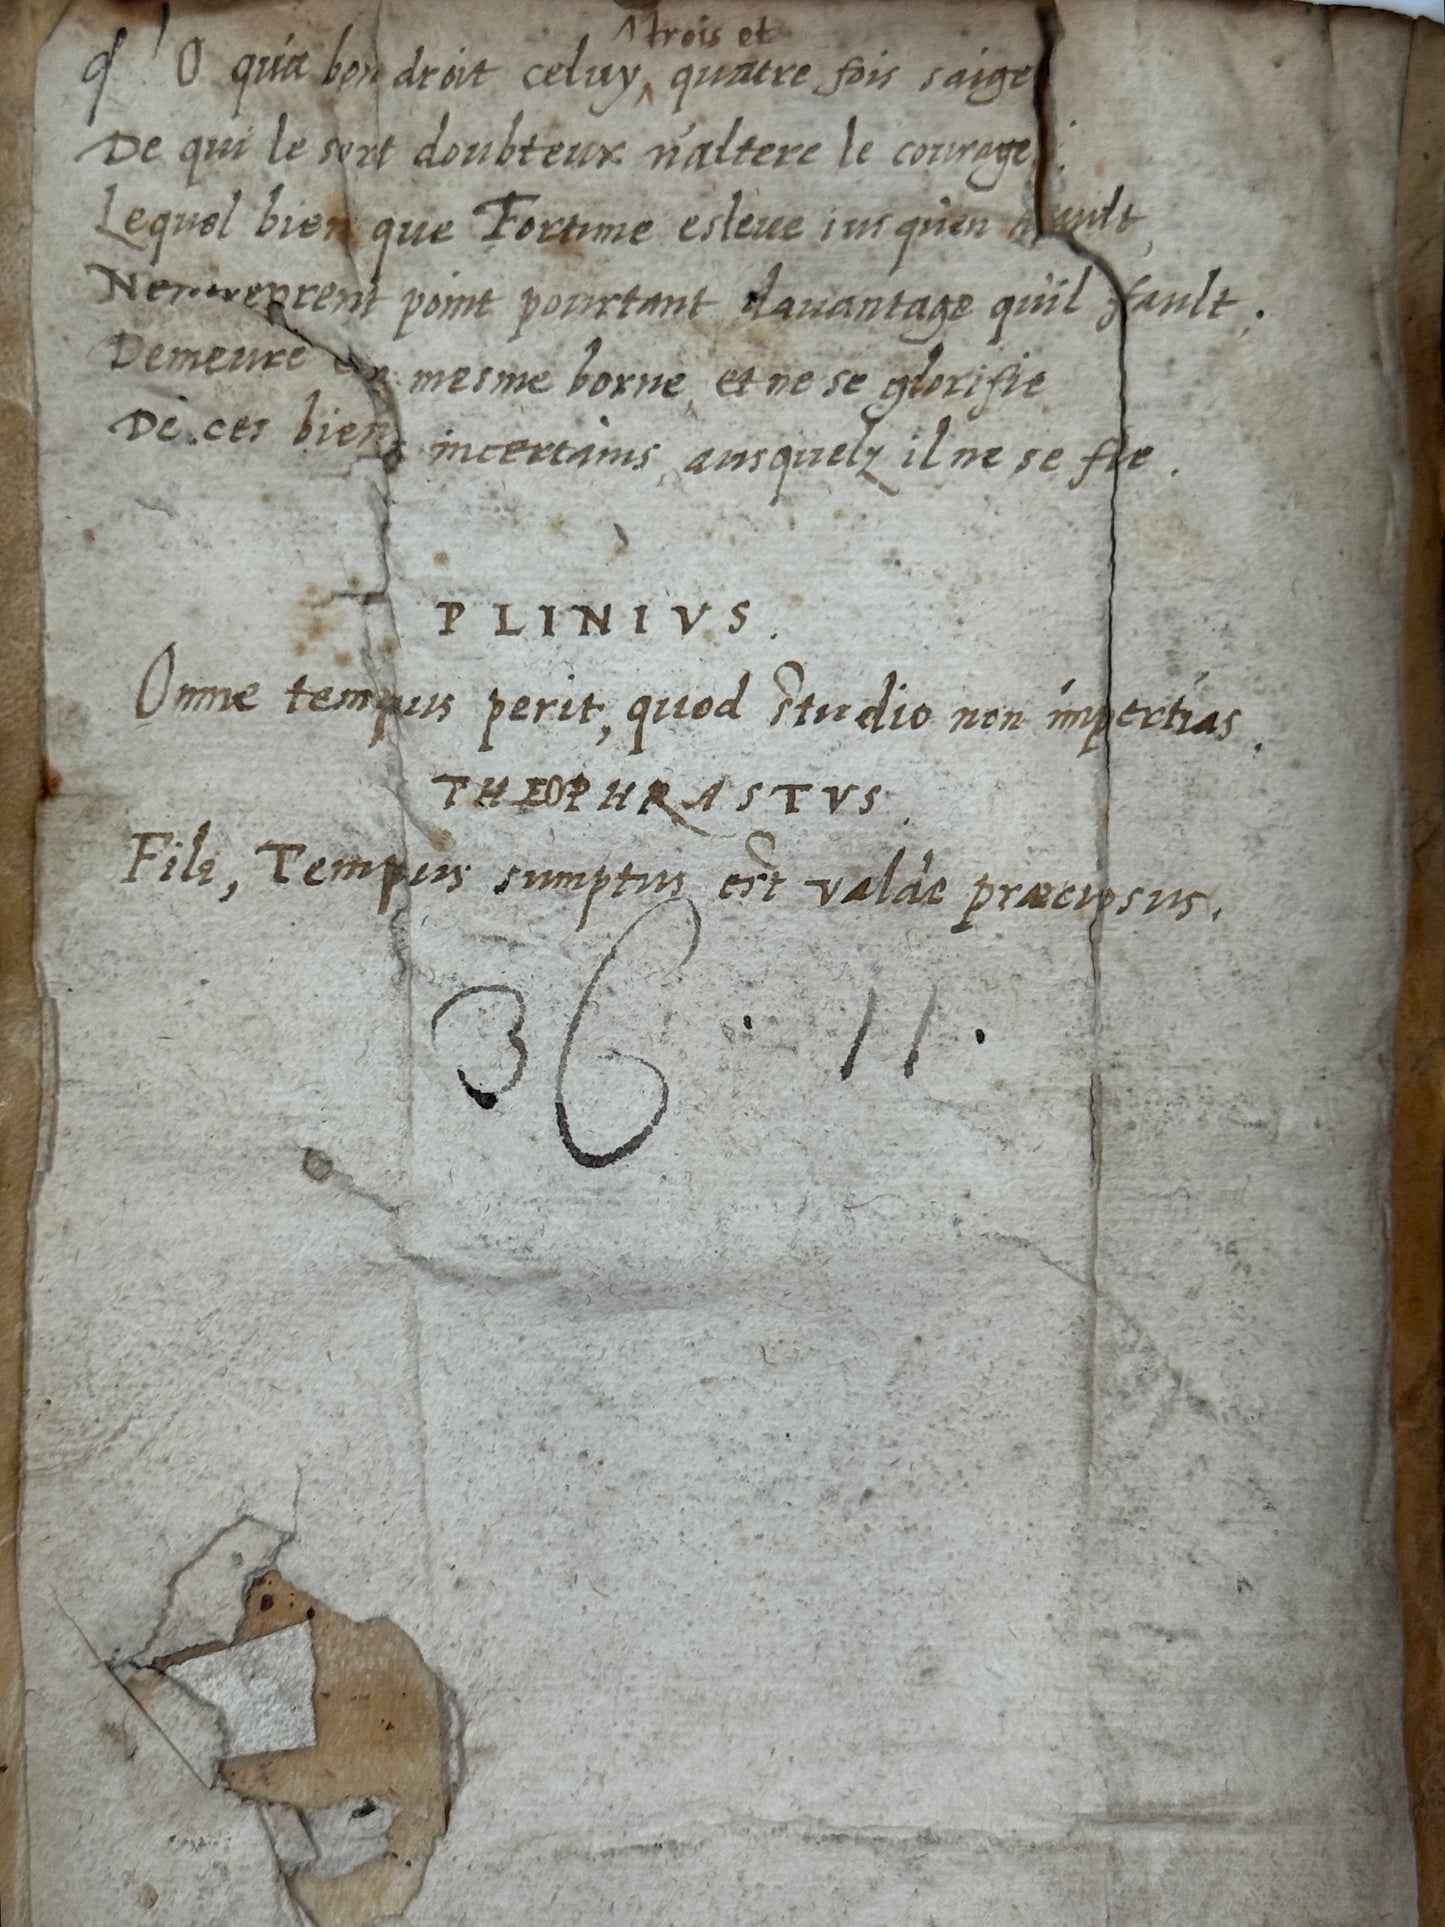 O qu'a bon droit celuy, trois et quattre fois saige
De qui le sort doubteux n'altere le courage:
Lequel bien que Fortune esleue iusqu'en hault,
N'entreprent point pourtant dauantage qu'il fault.
Demeure en mesme borne, et ne se glorifie
De ces biens incertains, ausquelz il ne se fie.
PLINIVS.
Omne tempus perit, quod studio non impertias.
THEOPHRASTVS.
Fili, Tempus sumptus est valde præciosus.
36 · 11 ·